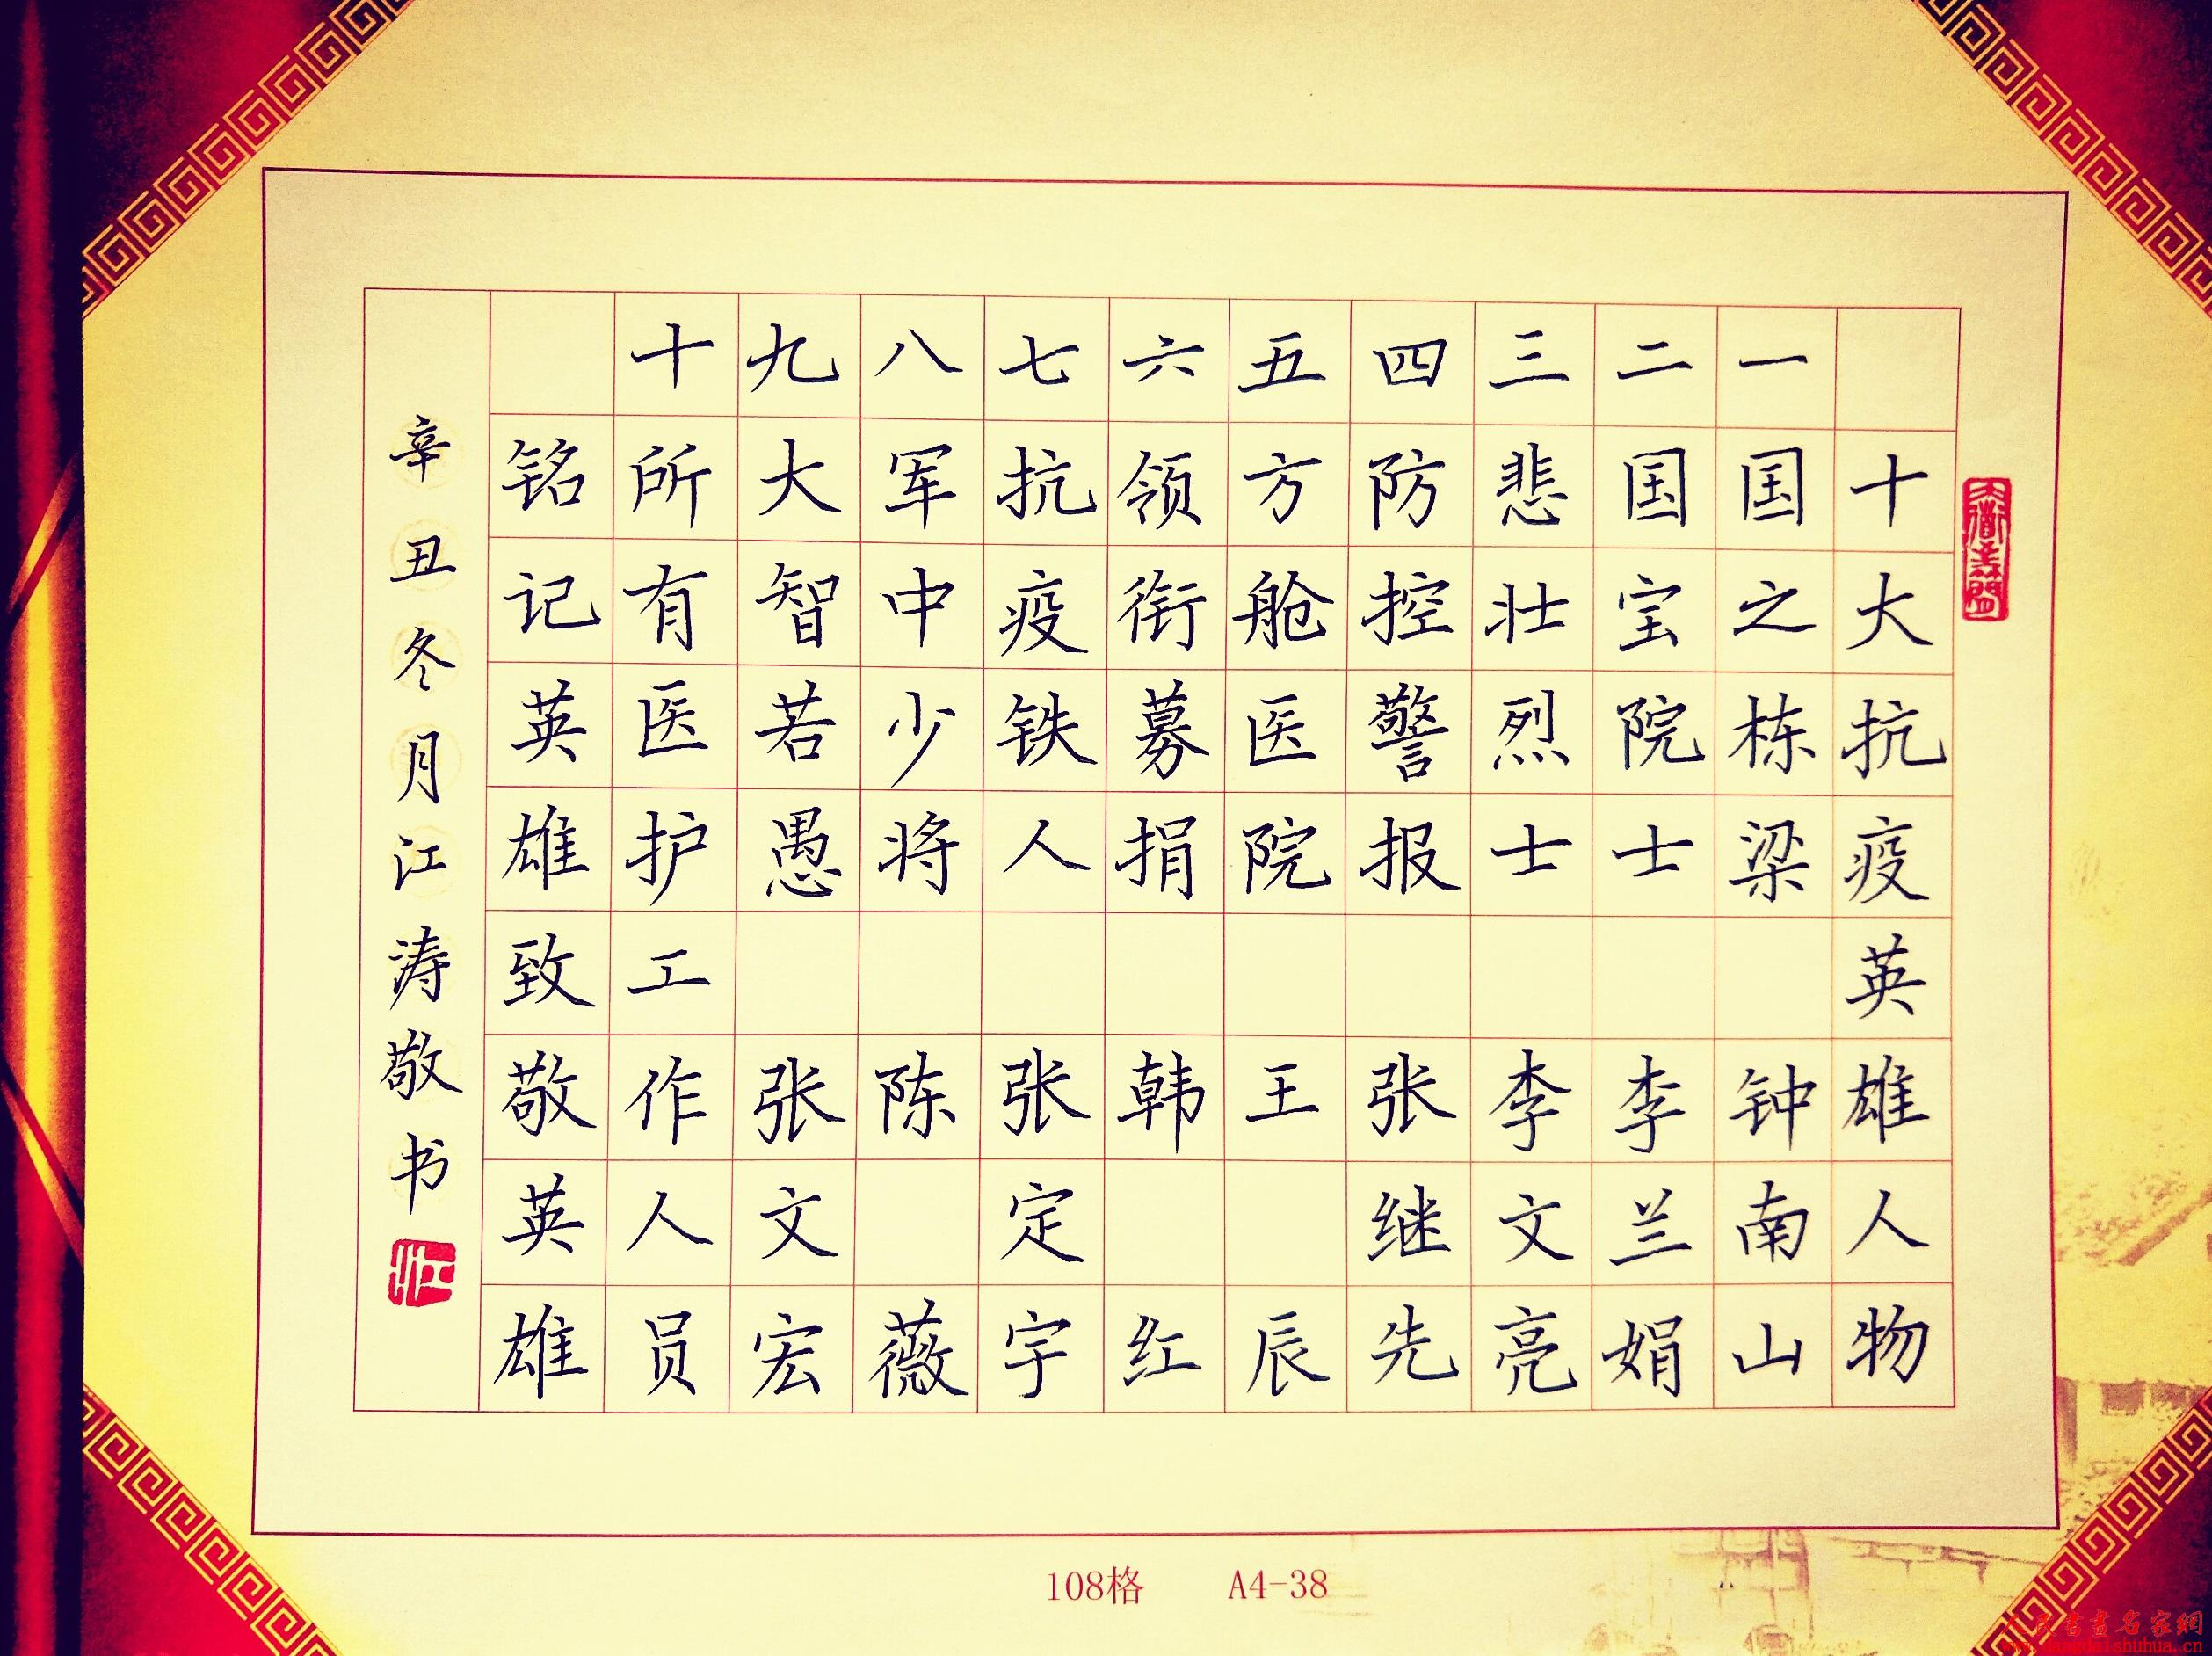 十大抗疫英雄人物
一国之栋梁 钟南山
二国宝院士 李兰娟
三悲壮烈士 李文亮
四防控警报 张继先
五方舱医院 王辰
六领衔募捐 韩红
七抗疫铁人 张定宇
八军中少将 陈薇
九大智若愚 张文宏
十所有医护工作人员
铭记英雄致敬英雄
辛丑冬月江涛敬书
108格 A4-38
人民书画名家網